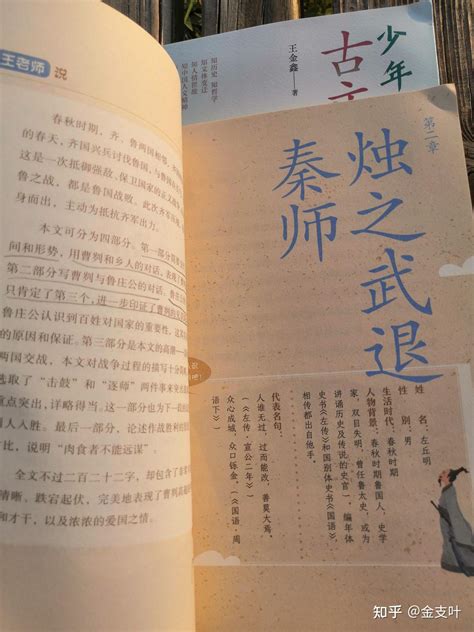 少年
古文
王金鑫 著
知历史 知哲学
王老师 说
春秋时期，齐、鲁两国相邻，
的春天，齐国兴兵讨伐鲁国，
这是一次抵御强敌、保卫国家的正义
鲁之战，都是鲁国战败，此次齐军
身而出，主动为抵抗齐军出力。
本文可分为四部分。第一部分
间和形势，用曹刿和乡人的对话，
第二部分写曹刿与鲁庄公的对话，鲁庄公
只肯定了第三个，进一步印证了曹刿的
鲁庄公认识到百姓对国家的重要性，这
的原因和保证。第三部分是本文的高潮
两国交战，本文对战争过程的描写十分
选取了“击鼓”和“逐师”两件事来
重点突出，详略得当。这一部分也为下
引人入胜。最后一部分，论述作战胜利的
比，说明“肉食者不能远谋”
全文不过二百二十二字，却包含了
清晰，跌宕起伏，完美地表现了曹刿
和才干，以及浓浓的爱国之情。
第二章
烛之武退
秦师
姓 名：左丘明
性 别：男
生活时代：春秋时期
人物背景：春秋时期鲁国人，史学
家，双目失明，曾任鲁太史，或为
讲诵历史及传说的史官，编年体
史书《左传》和国别体史书《国语》
相传都出自他手。
代表名句：
人谁无过，过而能改，善莫大焉。
（《左传·宣公二年》）
众心成城，众口铄金。（《国语·周
语下》）
知乎 @金支叶